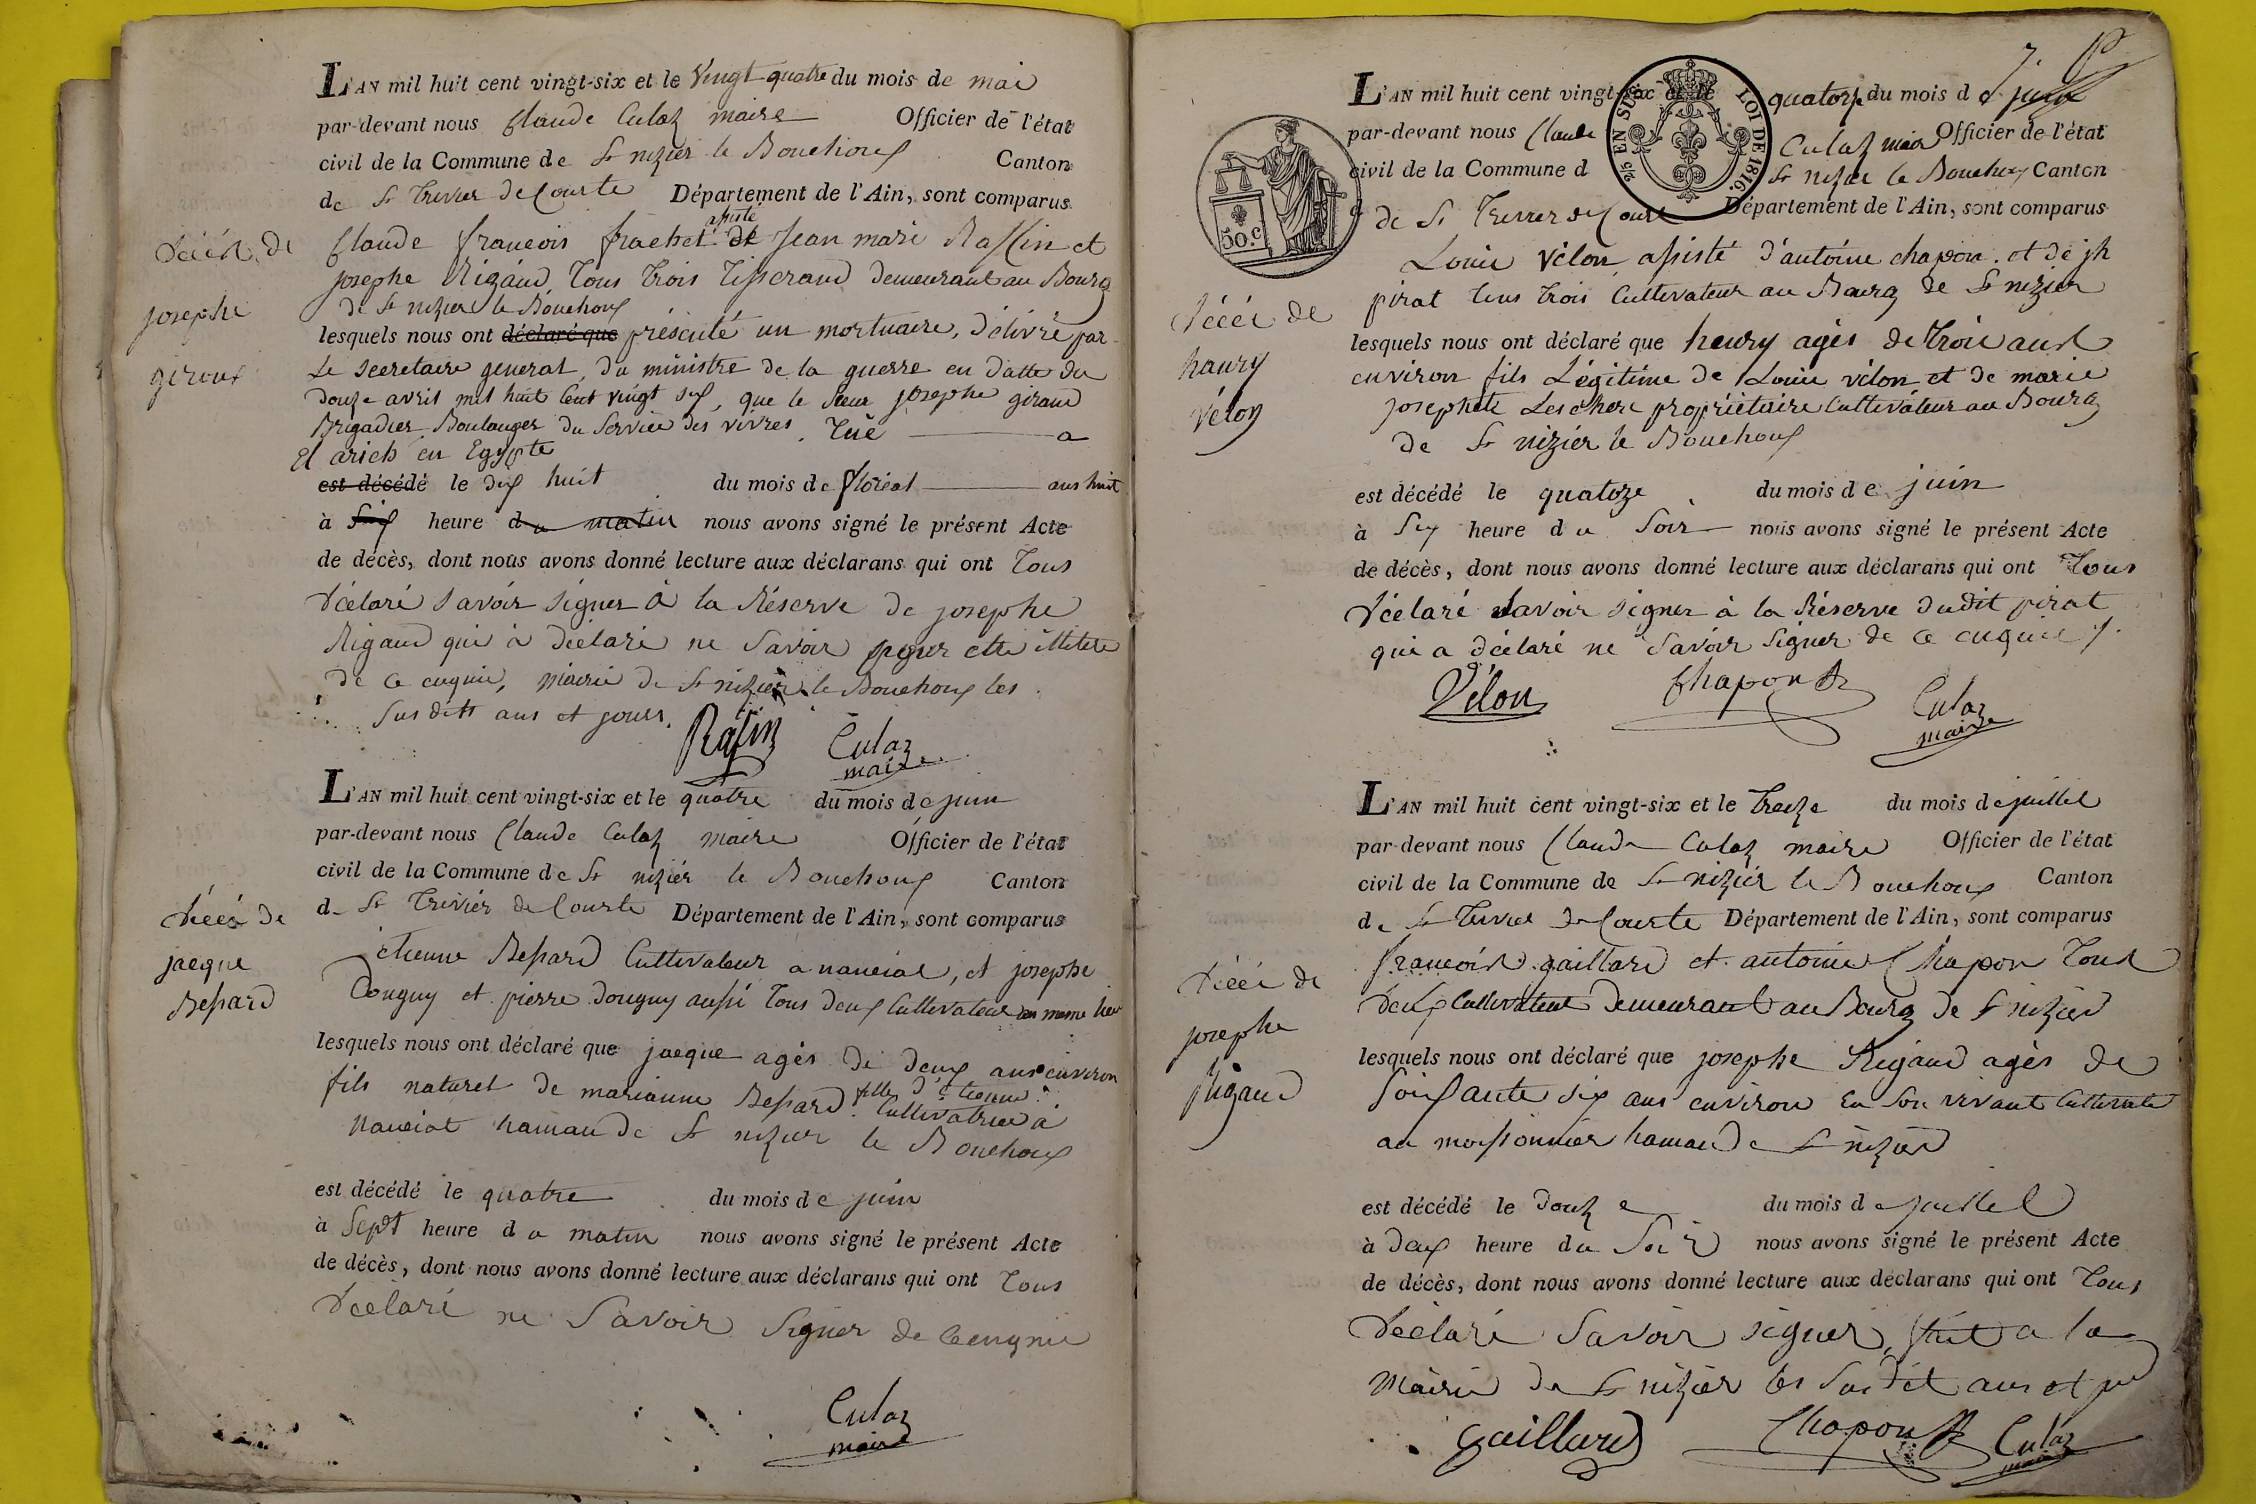 L'AN mil huit cent vingt-six et le Vingt quatre du mois de mai
par-devant nous Claude Culaz maire Officier de l'état
civil de la Commune de St nizier le Bouchoux Canton
de St Trivier de Courte Département de l'Ain, sont comparus
assisté
Claude francois frachet de Jean mari Raffin et
josephe Rigaud, Tous Trois Tisserand demeurant au Bourg
de St nizier le Bouchoux
lesquels nous ont déclaré que présenté un mortuaire, délivré par
Le secretaire general, du ministre de la guerre en datte du
douze avril mil huit Cent vingt six, que le sieur josephe giraud
Brigadier Boulanger du Service des vivres, Tué a
El arich en Egypte
est décédé le dix huit du mois de floréal ans huit
à six heure du matin nous avons signé le présent Acte
de décès, dont nous avons donné lecture aux déclarans qui ont Tous
déclaré savoir signer à la Réserve de josephe
Rigaud qui à déclaré ne Savoir signer
de ce enquie, mairie de St nizier le Bouchoux les
sus dits ans et jours.
Culaz
maire
Décès de
josephe
giroux
L'AN mil huit cent vingt-six et le quatre du mois de juin
par-devant nous Claude Culaz maire Officier de l'état
civil de la Commune de St nizier le Bouchoux Canton
de St Trivier de Courte Département de l'Ain, sont comparus
etienne Bessard Cultivateur a nanciat, et josephe
Donguy et pierre donguy aussi Tous deux Cultivateur au meme lieu
lesquels nous ont déclaré que jacque agés de deux ans environ
fils naturel de marianne Bessard fille d'etienne
Cultivatrice à
nanciat hamau de St nizier le Bouchoux
est décédé le quatre du mois de juin
à Sept heure du matin nous avons signé le présent Acte
de décès, dont nous avons donné lecture aux déclarans qui ont Tous
déclaré ne Savoir signer de ce enquie
Culaz
maire
Décès de
jacque
Bessard
7.
2/5 EN SUS LOI DE 1816.
50.c
L'AN mil huit cent vingt-six et le quatorze du mois de juin
par-devant nous Claude Culaz maire Officier de l'état
civil de la Commune d St nizier le Bouchoux Canton
de St Trivier de Courte Département de l'Ain, sont comparus
Louis Vélon assisté d'antoine chapon. et de jh
pirat tous trois Cultivateur au Bourg de St nizier
lesquels nous ont déclaré que henry agés de Trois ans
environ fils Légitime de Louis vélon et de marie
josephete Lescherc propriétaire Cultivateur au Bourg
de St nizier le Bouchoux
est décédé le quatoze du mois de juin
à Six heure du Soir nous avons signé le présent Acte
de décès, dont nous avons donné lecture aux déclarans qui ont Tous
déclaré savoir signer à la Réserve dudit pirat
qui a déclaré ne Savoir Signer de ce enquie
Vélon Chapon Culaz
maire
Décès de
hanry
vélon
L'AN mil huit cent vingt-six et le Treize du mois de juillet
par-devant nous Claude Culaz maire Officier de l'état
civil de la Commune de St nizier le Bouchoux Canton
de St Trivier de Courte Département de l'Ain, sont comparus
francois gaillard et antoine Chapon Tous
deux Cultivateur demeurant au Bourg de St nizier
lesquels nous ont déclaré que josephe Rigaud agés de
soixante six ans environ En Son vivant Cultivate
au moissonnier hamau de St nizier
est décédé le douze du mois de juillet
à deux heure du Soir nous avons signé le présent Acte
de décès, dont nous avons donné lecture aux déclarans qui ont Tous
déclaré Savoir signer, fait a la
mairie de St nizier les susdit ans et jour
Gaillard Chapon Culaz
maire
Décès de
josephe
Rigaud